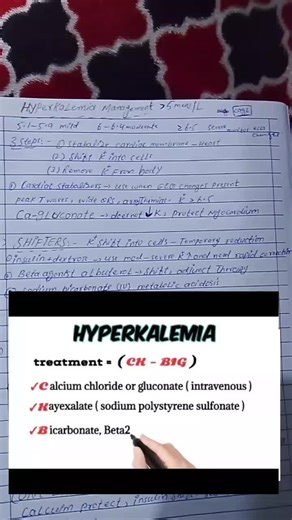 Hyperkalemia Management > 5 mEq/L → ORBL
5-1-5.9 mild 6-6.4 moderate ≥ 6.5 severe
3 Steps:- ① Stabilize cardiac membrane - Heart
(2) Shift K⁺ into cells
(3) Remove K⁺ from body
① Cardiac stabilizers - use when ECG changes present
peak T waves, wide QRS, arrhythmias, K⁺ > 6.5
Ca-gluconate → doesn't ↓ K, protect myocardium
SHIFTERS:- K⁺ Shift into cells - Temporary reduction
① insulin + dextrose → use mod-severe K⁺ and need rapid correction
② Beta agonist albuterol → shifts, adjunct therapy
sodium bicarbonate (IV) metabolic acidosis
HYPERKALEMIA
treatment = ( CK - BIG )
✓Calcium chloride or gluconate ( intravenous )
✓Kayexalate ( sodium polystyrene sulfonate )
✓Bicarbonate, Beta2
calcium protect, insulin